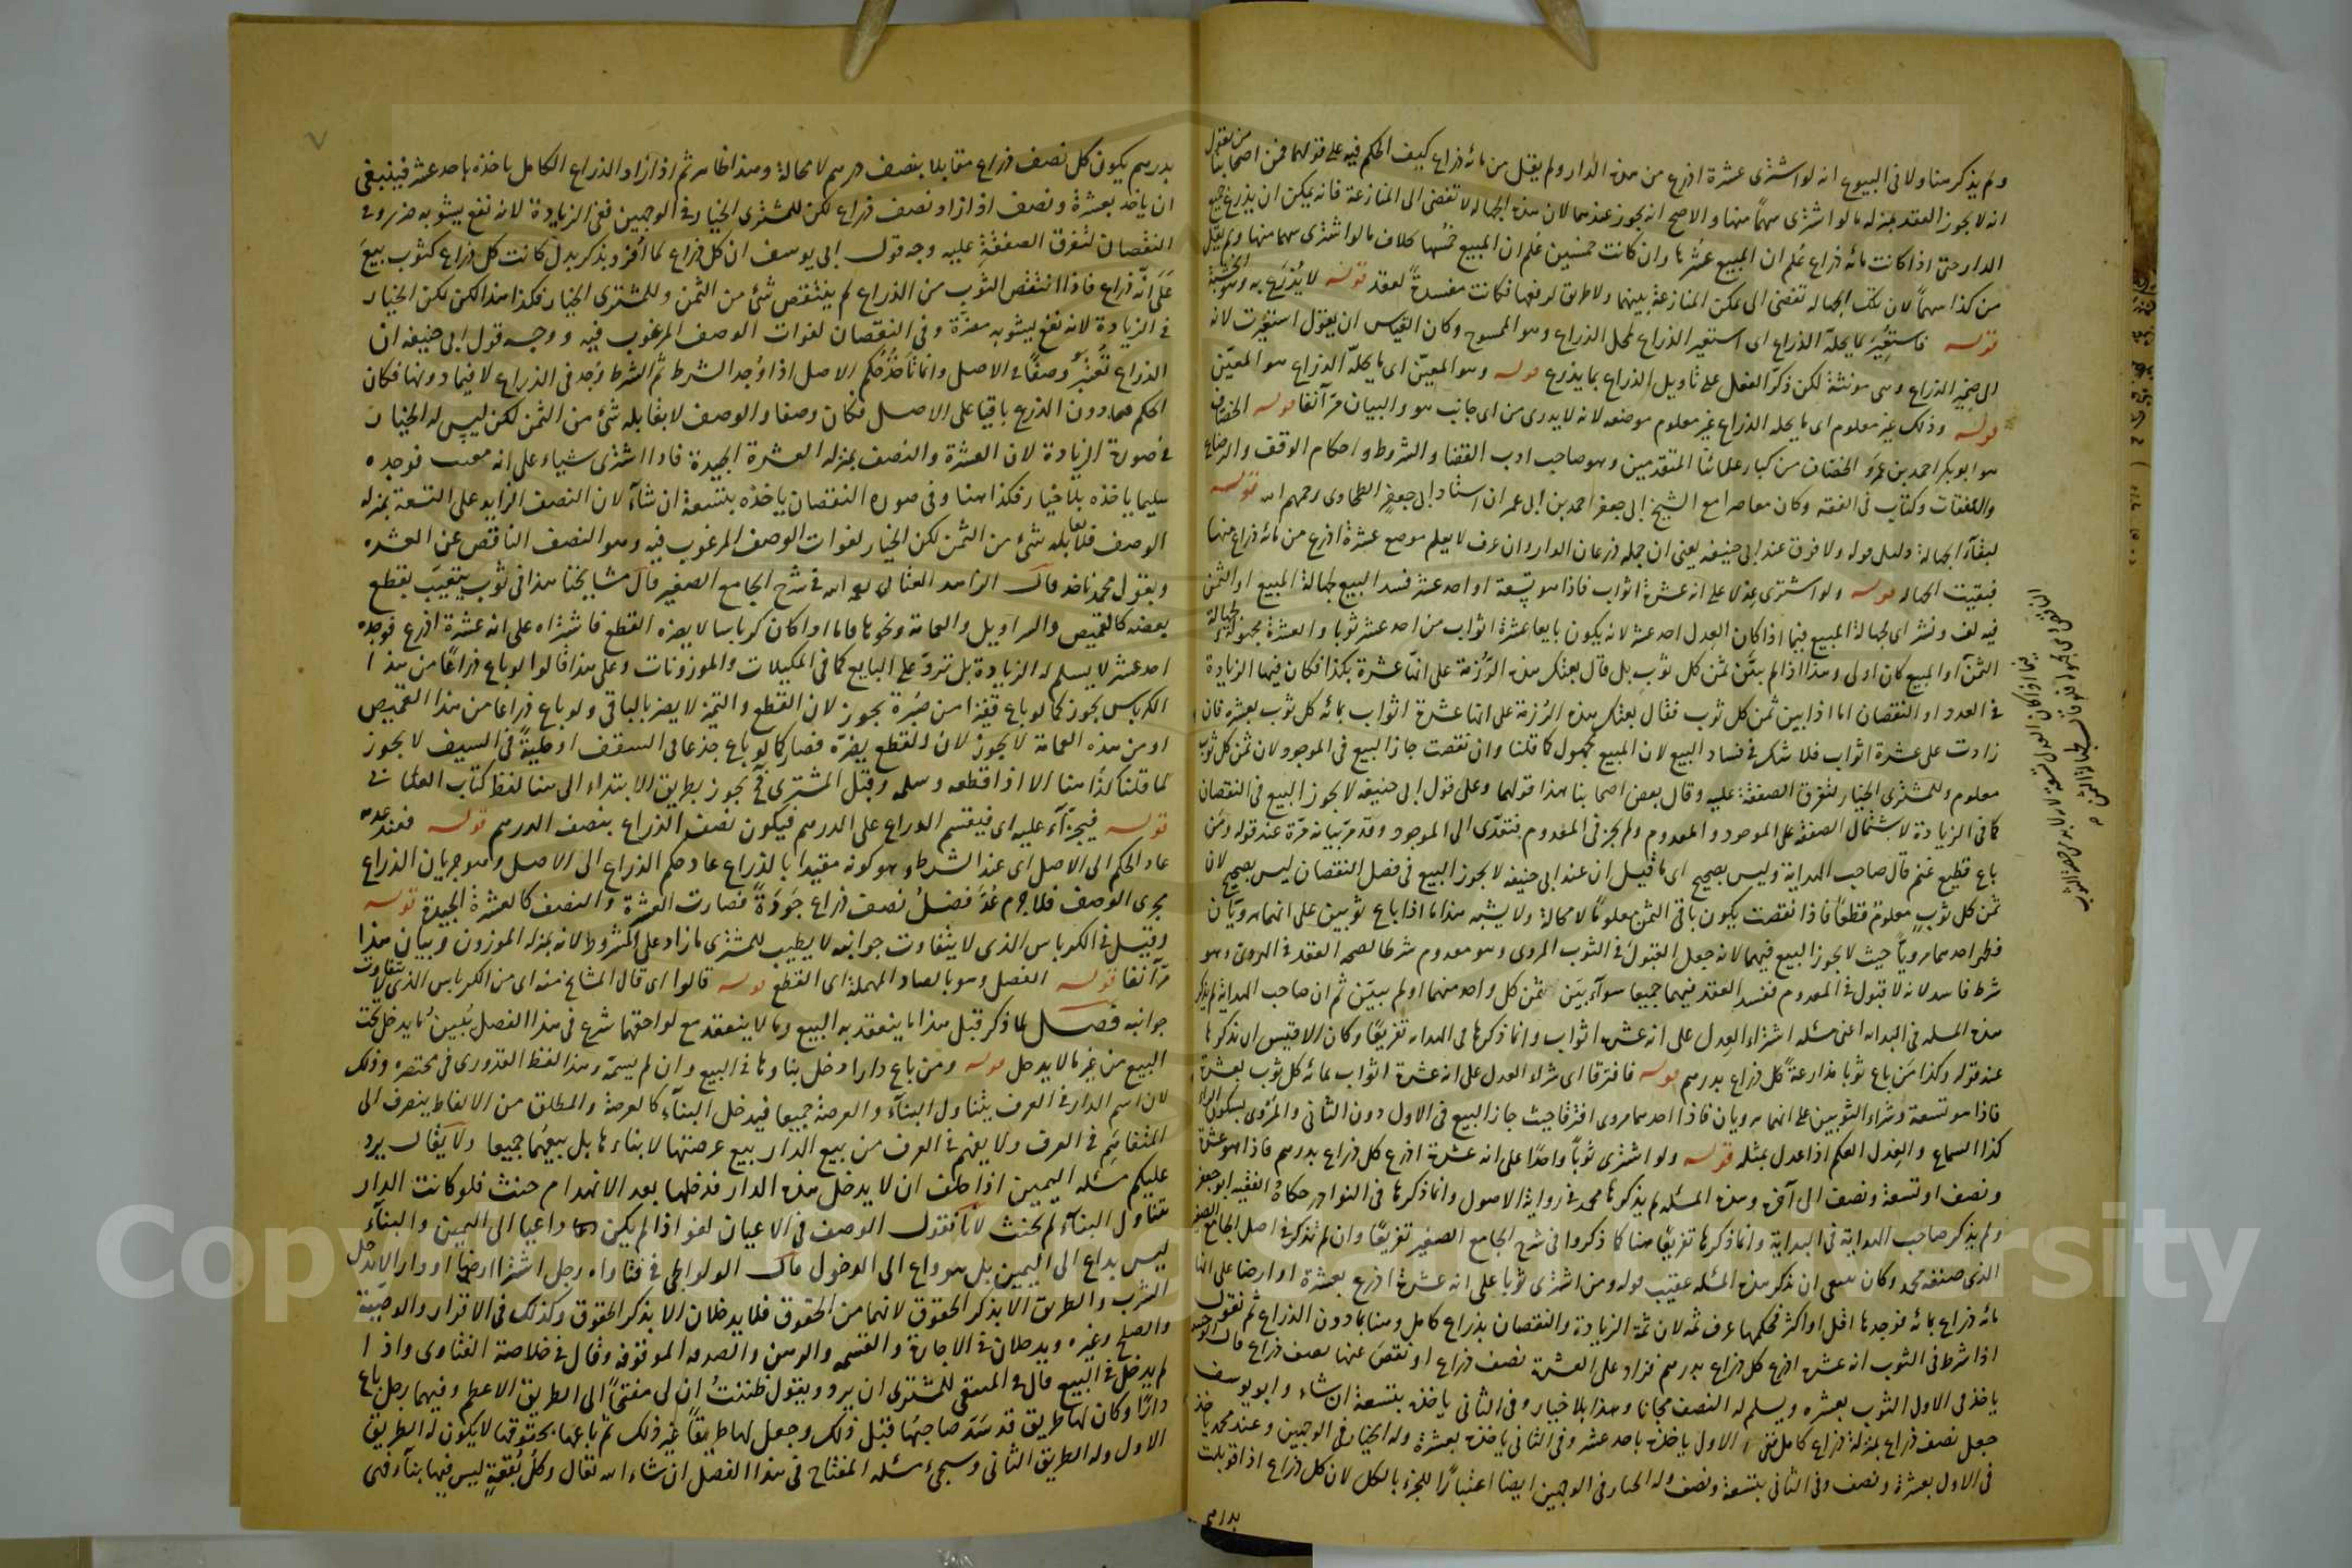 ولم يذكر هنا ولا في البيوع انه لو اشترى عشرة اذرع من هذه الدار ولم يقل من مائة ذراع كيف الحكم فيه على قولهما فمن اصحابنا من يقول
انه لا يجوز العقد بمنزلة ما لو اشترى سهماً منها والاصح انه يجوز عندهما لان هذه الجهالة لا تفضى الى المنازعة فانه يمكن ان يذرع جميع
الدار حتى اذا كانت مائة ذراع عُلم ان المبيع عُشرها وان كانت خمسين عُلم ان المبيع خمسها بخلاف ما لو اشترى سهما منها ولم يقل
من كذا سهماً لان تلك الجهالة تفضى الى تمكن المنازعة بينهما ولا طريق لرفعها فكانت مفسدةً لعقد قوله لا يُذرَع به وهو الخشبة
قوله فاستعير لما يحلّه الذراع اى استعير الذراع لمحل الذراع وهو الممسوح وكان القياس ان يقول استعيرت لانه
الى ضمير الذراع وهى مونثة لكن ذكّر الفعل على تأويل الذراع بما يذرع قوله وهو المعيّن اى ما يحلّه الذراع هو المعيّن
قوله وذلك غير معلوم اى ما يحله الذراع غير معلوم موضعه لانه لا يدرى من اى جانب هو والبيان مرّ آنفا قوله الخصاف
هو ابو بكر احمد بن عمرو الخصّاف من كبار علمائنا المتقدمين وهو صاحب ادب القضا والشروط واحكام الوقف والرضاع
والنفقات وكتاب فى الفقه وكان معاصرا مع الشيخ ابى جعفر احمد بن ابى عمران استاد ابى جعفر الطحاوى رحمهم الله قوله
لبقآء الجهالة دليل قوله ولا فرق عند ابى حنيفه يعنى ان جملة ذرعان الدار وان عرف لا يعلم موضع عشرة اذرع من مائة ذراع منها
فبقيت الجهاله قوله ولو اشترى عِدلا على انه عشرة اثواب فاذا هو تسعة او احد عشر فسد البيع لجهالة المبيع او الثمن
فيه لف ونشر اى لجهالة المبيع فيما اذا كان العدل احد عشر لانه يكون بايعا عشرة اثواب من احد عشر ثوبا والعشرة مجهولة
الثمن او المبيع كان اولى وهذا اذا لم يبيّن ثمن كل ثوب بل قال بعتك هذه الرُزمة على انها عشرة بكذا فكان فيها الزيادة
فى العدد او النقصان اما اذا بين ثمن كل ثوب فقال بعتك هذه الرُزمة على انها عشرة اثواب بمائة كل ثوب بعشرة فان
زادت على عشرة اثواب فلا شك فى فساد البيع لان المبيع مجهول كما قلنا وان نقصت جاز البيع فى الموجود لان ثمن كل ثوب
معلوم وللمشترى الخيار لتفرق الصفقة عليه وقال بعض اصحابنا هذا قولهما وعلى قول ابى حنيفه لا يجوز البيع فى النقصان
كما فى الزيادة لاشتمال الصفقة على الموجود والمعدوم ولم يجز فى المعدوم فتعدّى الى الموجود وقد مرّ بيانه مرّة عند قوله ومن
باع قطيع غنم قال صاحب الهداية وليس بصحيح اى ما قيل ان عند ابى حنيفه لا يجوز البيع فى فصل النقصان ليس بصحيح لان
ثمن كل ثوب معلومٌ قطعاً فاذا نقصت يكون باقى الثمن معلومًا لا محالة ولا يشبه هذا ما اذا باع ثوبين على انهما مرويان
فظهر احدهما مروياً حيث لا يجوز البيع فيهما لانه جعل القبول فى الثوب المروى وهو معدوم شرطا لصحة العقد فى الهروى وهو
شرط فاسد لانه لا قبول فى المعدوم ففسد العقد فيهما جميعا سوآء بيّن ثمن كل واحد منهما او لم يبيّن ثم ان صاحب الهداية لم يذكر
هذه المسله فى البدايه اعنى مسئله اشتراء العِدل على انه عشرة اثواب وانما ذكرها فى الهدايه تفريعًا وكان الاقيس ان يذكرها
عند قوله وكذا مَن باع ثوبا مذارعةً كل ذراع بدرهم قوله فافترقا اى شراء العدل على انه عشرة اثواب بمائة كل ثوب بعشرة
فاذا هو تسعة وشراء الثوبين على انهما مرويان فاذا احدهما مروى افترقا حيث جاز البيع فى الاول دون الثانى والمروى بسكون الراء
كذا السماع والعِدل العكم اذا عدل بمثله قوله ولو اشترى ثوباً واحدًا على انه عشرة اذرع كل ذراع بدرهم فاذا هو عشرة
ونصف او تسعة ونصف الى آخره وهذه المسئله لم يذكرها محمد فى رواية الاصول وانما ذكرها فى النوادر حكاهُ الفقيه ابو جعفر
ولم يذكر صاحب الهداية فى البداية وانما ذكرها تفريعًا هنا كما ذكروا فى شرح الجامع الصغير تفريعًا وان لم تذكر فى اصل الجامع الصغير
الذى صنفه محمد وكان ينبغى ان يذكر هذه المسئله عقيب قوله ومن اشترى ثوبا على انه عشرة اذرع بعشرة او ارضا على انها
مائة ذراع بمائة فوجدها اقل او اكثر فحكمها عرف ثمه لان ثمة الزيادة والنقصان بذراع كامل وهنا بما دون الذراع ثم نقول
اذا شرط فى الثوب انه عشرة اذرع كل ذراع بدرهم فزاد على العشرة نصف ذراع او نقص عنها نصف ذراع قال ابو حنيفه
ياخذ فى الاول الثوب بعشرة ويسلم له النصف مجانا وهذا بلا خيار وفى الثانى ياخذه بتسعة ان شاء وابو يوسف
جعل نصف ذراع بمنزلة ذراع كامل ففى الاول ياخذه باحد عشر وفى الثانى ياخذه بعشرة وله الخيار فى الوجهين وعند محمد ياخذ
فى الاول بعشرة ونصف وفى الثانى بتسعة ونصف وله الخيار فى الوجهين ايضا اعتبارًا للجزء بالكل لان كل ذراع اذا قوبلت
بدرهم
بدرهم يكون كل نصف ذراع مقابلا بنصف درهم لا محالة وهذا ظاهر ثم اذا زاد الذراع الكامل ياخذه باحد عشر فينبغى
ان ياخذ بعشرة ونصف اذا زاد نصف ذراع لكن للمشترى الخيار فى الوجهين ففى الزيادة لانه نفع يشوبه ضرر وفى
النقصان لتفرق الصفقة عليه وجه قول ابى يوسف ان كل ذراع لما اُفرد بذكر بدل كانت كل ذراع كثوب بيعَ
عَلَى انّه ذراع فاذا انتقص الثوب من الذراع لم ينتقص شئ من الثمن وللمشترى الخيار فكذا هذا لكن يكن الخيار
فى الزيادة لانه نفع يشوبه مضرّة وفى النقصان لفوات الوصف المرغوب فيه ووجه قول ابى حنيفه ان
الذراع تُعتبَر وَصفًا فى الاصل وانما تأخذ حُكم الاصل اذا وُجد الشرط ثم الشرط وُجد فى الذراع لا فيما دونها فكان
الحكم فيما دون الذرع باقيًا على الاصل فكان وصفا والوصف لا يقابله شئ من الثمن لكن ليس له الخيار
فى صورة الزيادة لان العشرة والنصف بمنزله العشرة الجيدة فاذا اشترى شياء على انه معيب فوجده
سليما ياخذه بلا خيار فكذا هنا وفى صوره النقصان ياخذه بتسعة ان شآء لان النصف الزايد على التسعة بمنزله
الوصف فلا يقابله شئ من الثمن لكن الخيار لفوات الوصف المرغوب فيه وهو النصف الناقص عن العشره
وبقول محمد ناخذ قال الزاهد العتابى رحمه الله فى شرح الجامع الصغير قال مشايخنا هذا فى ثوب يتعيّب بقطع
بعضه كالقميص والسراويل والعمامة ونحوها فاما اذا كان كرباسا لا يضره القطع فاشتراه على انه عشرة اذرع فوجده
احد عشر لا يسلم له الزيادة بل تردّ على البايع كما فى المكيلات والموزونات وعلى هذا قالوا لو باع ذراعًا من هذا
الكرباس يجوز كما لو باع قفيزا من صُبرة يجوز لان القطع والتميز لا يضر بالباقى ولو باع ذراعا من هذا القميص
او من هذه العمامة لا يجوز لان القطع يضرّه فصار كما لو باع جذعا فى السقف او حليةً فى السيف لا يجوز
كما قلنا كذا هنا الا اذا قطعه وسلمه وقبل المشترى فح يجوز بطريق الابتداء الى هنا لفظ كتاب العتابى
قوله فيجزّأ عليه اى فينقسم الذراع على الدرهم فيكون نصف الذراع بنصف الدرهم قوله فعند عدمه
عاد الحكم الى الاصل اى عند الشرط وهو كونه مقيدا بالذراع عاد حكم الذراع الى الاصل وهو جريان الذراع
مجرى الوصف فلا جرم عُدَّ فضلُ نصف ذراع جَودَةً فصارت العشرة والنصف كالعشرة الجيدة قوله
وقيل فى الكرباس الذى لا يتفاوت جوانبه لا يطيب للمشترى ما زاد على المشروط لانه بمنزله الموزون وبيان هذا
مرّ آنفا قوله الفصل وهو بالصاد المهملة اى القطع قوله قالوا اى قال المشايخ منه اى من الكرباس الذى لا يتفاوت
جوانبه فصل لما ذكر قبل هذا ما ينعقد به البيع وما لا ينعقد مع لواحقهما شرع فى هذا الفصل يُبين ما يدخل تحت
البيع من غير ما لا يدخل قوله ومن باع دارا دخل بناوها فى البيع وان لم يسمّه وهذا لفظ القدورى فى مختصره وذلك
لان اسم الدار فى العرف يتناول البنآء والعرصة جميعا فيدخل البنآء كالعرصة والمطلق من الالفاظ ينصرف الى
المتفاهم فى العرف ولا يفهم فى العرف من بيع الدار بيع عرصتها لا بناءها بل بيعهما جميعا ولا يقال يرد
عليكم مسئله اليمين اذا حلف ان لا يدخل هذه الدار فدخلها بعد الانهدام حنث فلو كانت الدار
تتناول البنآء لم يحنث لانا نقول الوصف فى الاعيان لغو اذا لم يكن داعيا الى اليمين والبنآء
ليس بداع الى اليمين بل هو داع الى الدخول قال الولوالجى فى فتاواه رجل اشترا ارضا او دارا لا يدخل
الشرب والطريق الا بذكر الحقوق لانهما من الحقوق فلا يدخلان الا بذكر الحقوق وكذلك فى الاقرار والوصيّة
والصلح وغيره ويدخلان فى الاجارة والقسمه والرهن والصدقه الموقوفه وقال فى خلاصة الفتاوى واذا
لم يدخل فى البيع قال فى المنتقى للمشترى ان يرد ويقول ظننتُ ان لى مفتحًا الى الطريق الاعظم وفيهما رجل باع
دارًا وكان لها طريق قد سَدّ صاحبُها قبل ذلك وجعل لها طريقًا غير ذلك ثم باعها بحقوقها لا يكون له الطريق
الاول وله الطريق الثانى وسيجئ مسئله المفتاح فى هذا الفصل ان شاء الله تعالى وكلُّ بُقعةٍ ليس فيها بنآء فهى